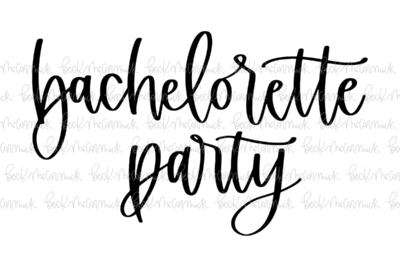 bachelorette
party